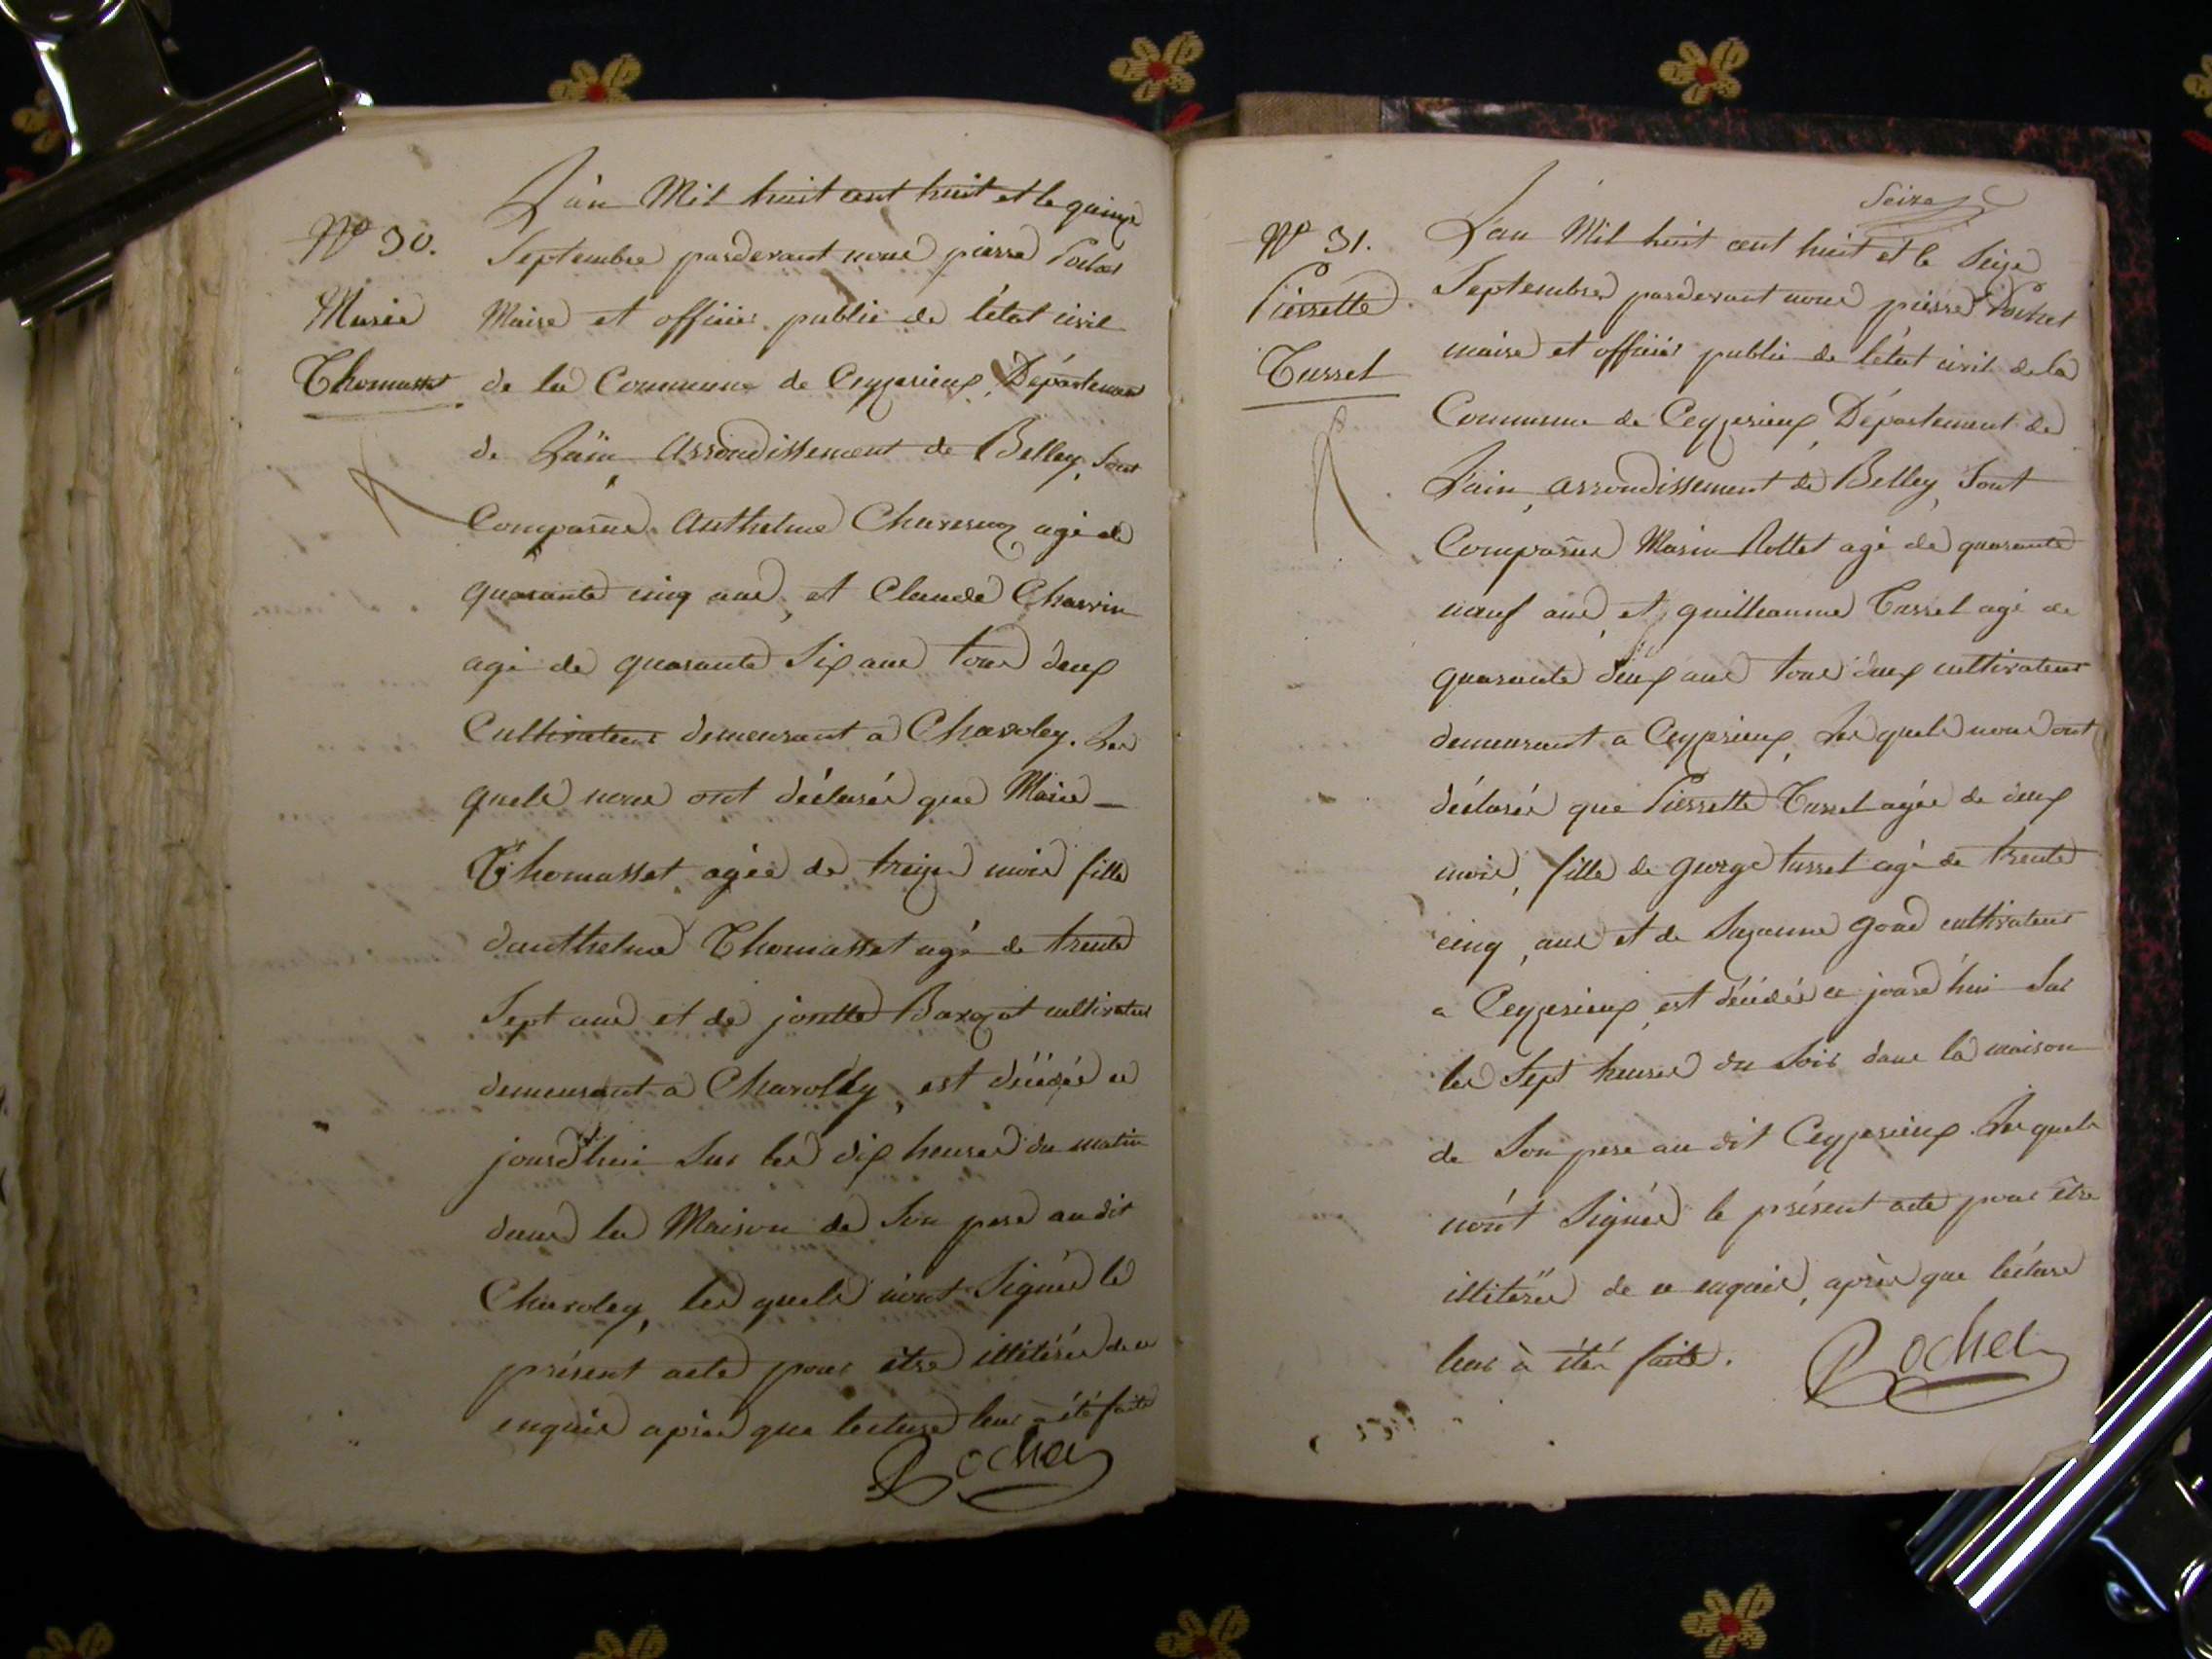 N° 30.
Marie
Thomasset
L'an Mil huit cent huit et le quinze
Septembre pardevant nous pierre Pochet
Maire et officier public de l'état civil
de la Commune de Ceyzerieux, Département
de L'ain, Arrondissement de Belley, sont
Comparus Anthelme Charveys agé de
quarante cinq ans, et Claude Charvin
agé de quarante Six ans tous deux
Cultivateurs demeurant a Charoley. Les
quels nous ont déclarés que Marie
Thomasset agée de treize mois fille
danthelme Thomasset agé de trente
Sept ans et de josette cultivateur
demeurant a Charolley, est décédée ce
jourd'hui Sur les dix heures du matin
dans la Maison de Son pere au dit
Charoley, les quels n'ont Signés le
présent acte pour être illitérés de ce
enquis après que lecture leur a été faite
Pochet
Seize
N° 31.
Pierrette
Tusset
L'an Mil huit cent huit et le Seize
Septembre pardevant nous pierre Pochet
maire et officier public de l'état civil de la
Commune de Ceyzerieux, Département de
L'ain, arrondissement de Belley, Sont
Comparus Marin Rottet agé de quarante
neuf ans, et guilhaume Tusset agé de
quarante deux ans tous deux cultivateurs
demeurant a Ceyzerieux, Les quels nous ont
déclarés que Pierrette Tusset agée de deux
mois, fille de george tusset agé de trente
cinq, ans et de Suzanne goud cultivateurs
a Ceyzerieux, est décédée ce jourd'hui Sur
les Sept heures du Soir dans la maison
de Son pere au dit Ceyzerieux. Les quels
n'ont Signés le présent acte pour être
illitérés de ce enquis, après que lecture
leur à été faite. Pochet